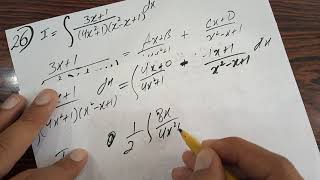 26) I = ∫ 3x+1 / (4x²+1)(x²-x+1) dx
3x+1 / = Ax+B / + Cx+D / x²-x+1
x+1 / (4x²+1)(x²-x+1) dx = ∫ 4x+0 / 4x²+1 - 1x+1 / x²-x+1 dx
I 1/2 ∫ 8x / 4x²